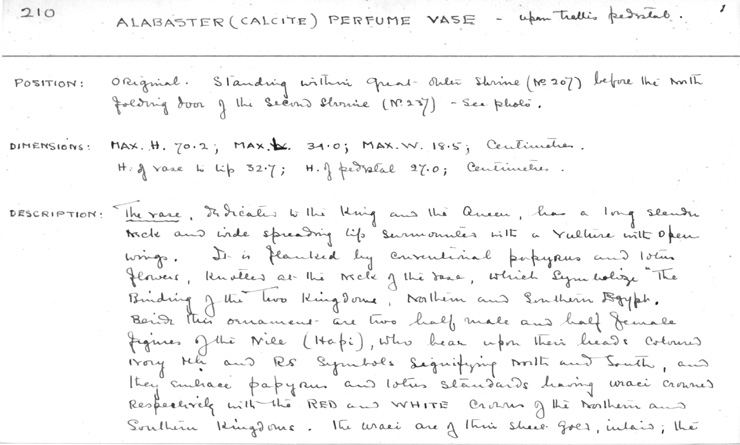 210
1
ALABASTER (CALCITE) PERFUME VASE - upon trellis pedestal.
POSITION: Original. Standing within Great outer Shrine (No. 207) before the North
folding door of the Second Shrine (No. 237) - see photo.
DIMENSIONS: MAX. H. 70.2; MAX. L. 34.0; MAX. W. 18.5; Centimetres.
H. of vase to lip 32.7; H. of pedestal 27.0; Centimetres.
DESCRIPTION: The vase, dedicated to the King and the Queen, has a long slender
neck and wide spreading lip surmounted with a vulture with open
wings. It is flanked by conventional papyrus and lotus
flowers, knotted at the neck of the vase, which symbolize "The
Binding of the two Kingdoms, Northern and Southern Egypt.
Beside this ornament are two half male and half female
figures of the Nile (Hapi), who bear upon their heads coloured
ivory Mḥ and RS Symbols signifying North and South, and
they embrace papyrus and lotus standards having uraei crowned
respectively with the RED and WHITE Crowns of the Northern and
Southern Kingdoms. The uraei are of thin sheet gold, inlaid; the